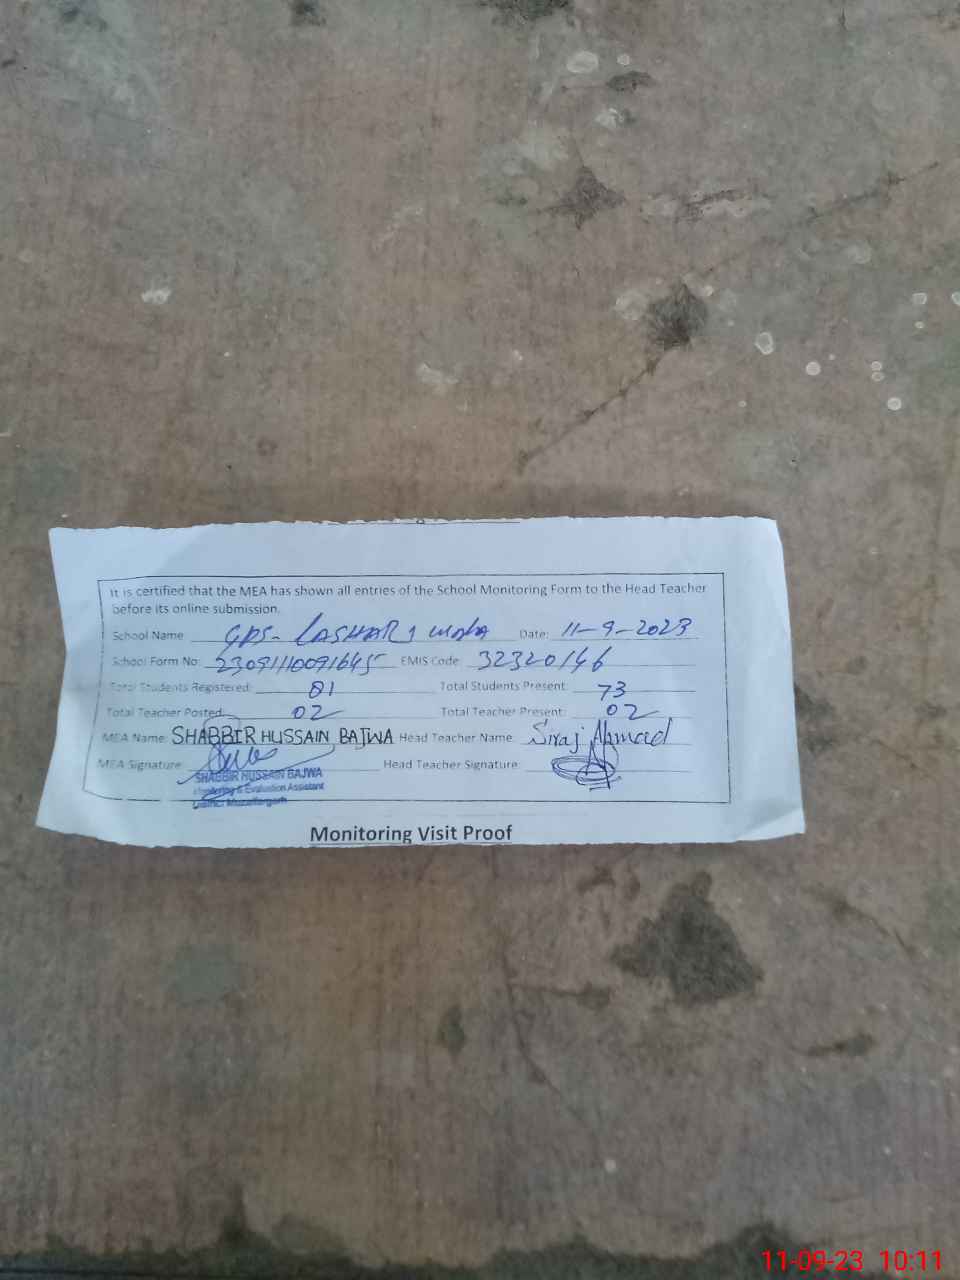 It is certified that the MEA has shown all entries of the School Monitoring Form to the Head Teacher
before its online submission.
School Name GPS- LASHARI Date: 11-9-2023
School Form No: 23091110091645 EMIS Code: 32320146
Total Students Registered: 81 Total Students Present: 73
Total Teacher Posted: 02 Total Teacher Present: 02
MEA Name: SHABBIR HUSSAIN BAJWA Head Teacher Name: Siraj Ahmad
MEA Signature: Head Teacher Signature:
SHABBIR HUSSAIN BAJWA
Monitoring & Evaluation Assistant
District Muzaffargarh
Monitoring Visit Proof
11-09-23 10:11